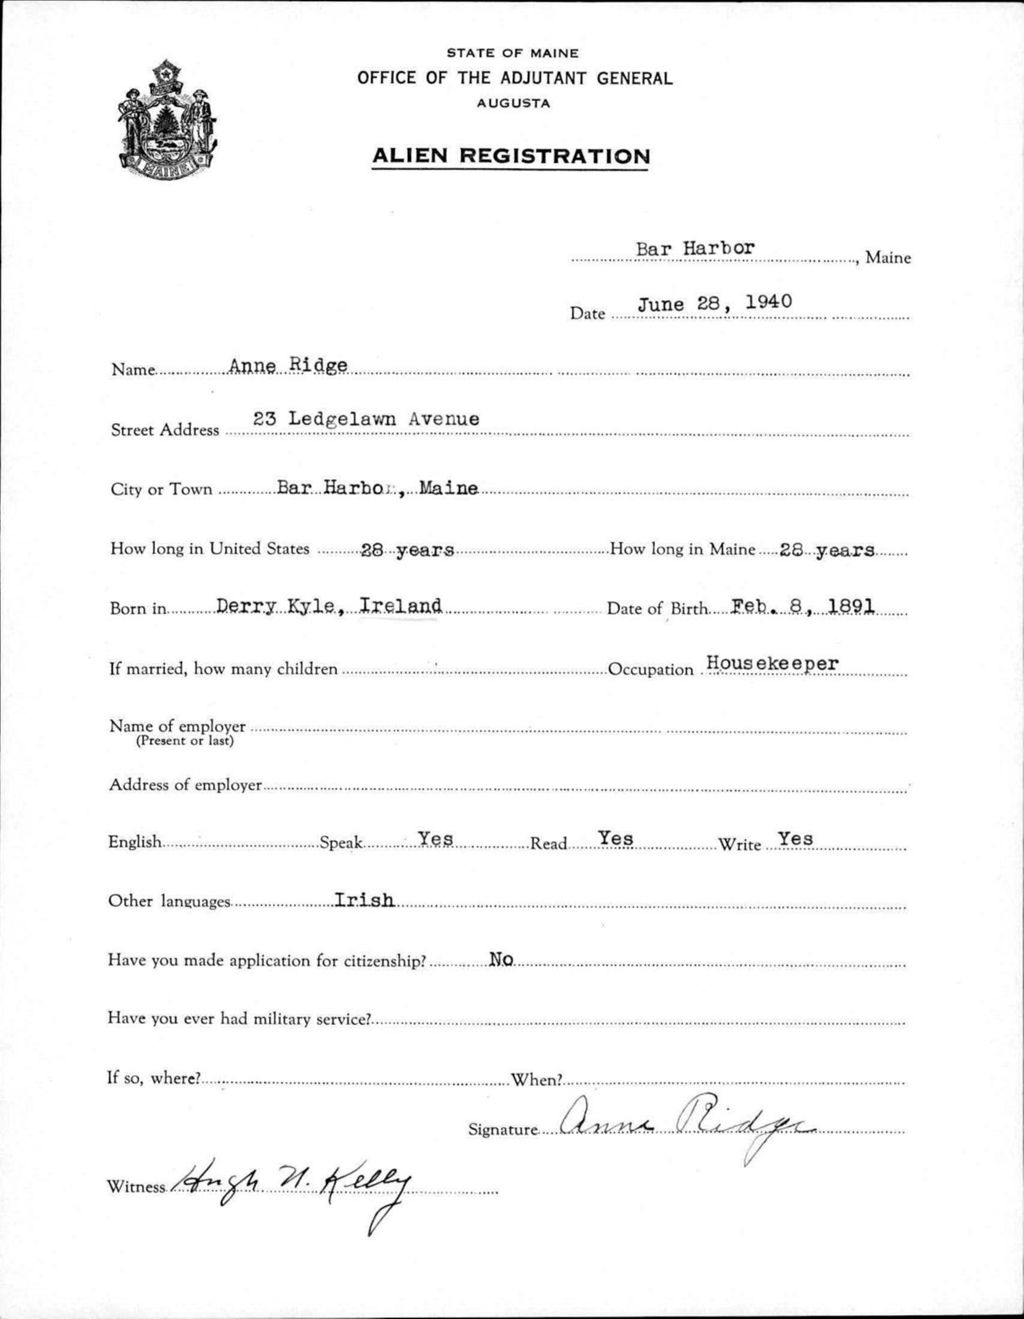 STATE OF MAINE
OFFICE OF THE ADJUTANT GENERAL
AUGUSTA
ALIEN REGISTRATION
MAINE
Bar Harbor, Maine
Date June 28, 1940
Name Anne Ridge
Street Address 23 Ledgelawn Avenue
City or Town Bar Harbor, Maine
How long in United States 28 years How long in Maine 28 years
Born in Derry Kyle, Ireland Date of Birth Feb. 8, 1891
If married, how many children Occupation Housekeeper
Name of employer
(Present or last)
Address of employer
English Speak Yes Read Yes Write Yes
Other languages Irish
Have you made application for citizenship? No
Have you ever had military service?
If so, where? When?
Signature Anne Ridge
Witness Hugh N. Kelly